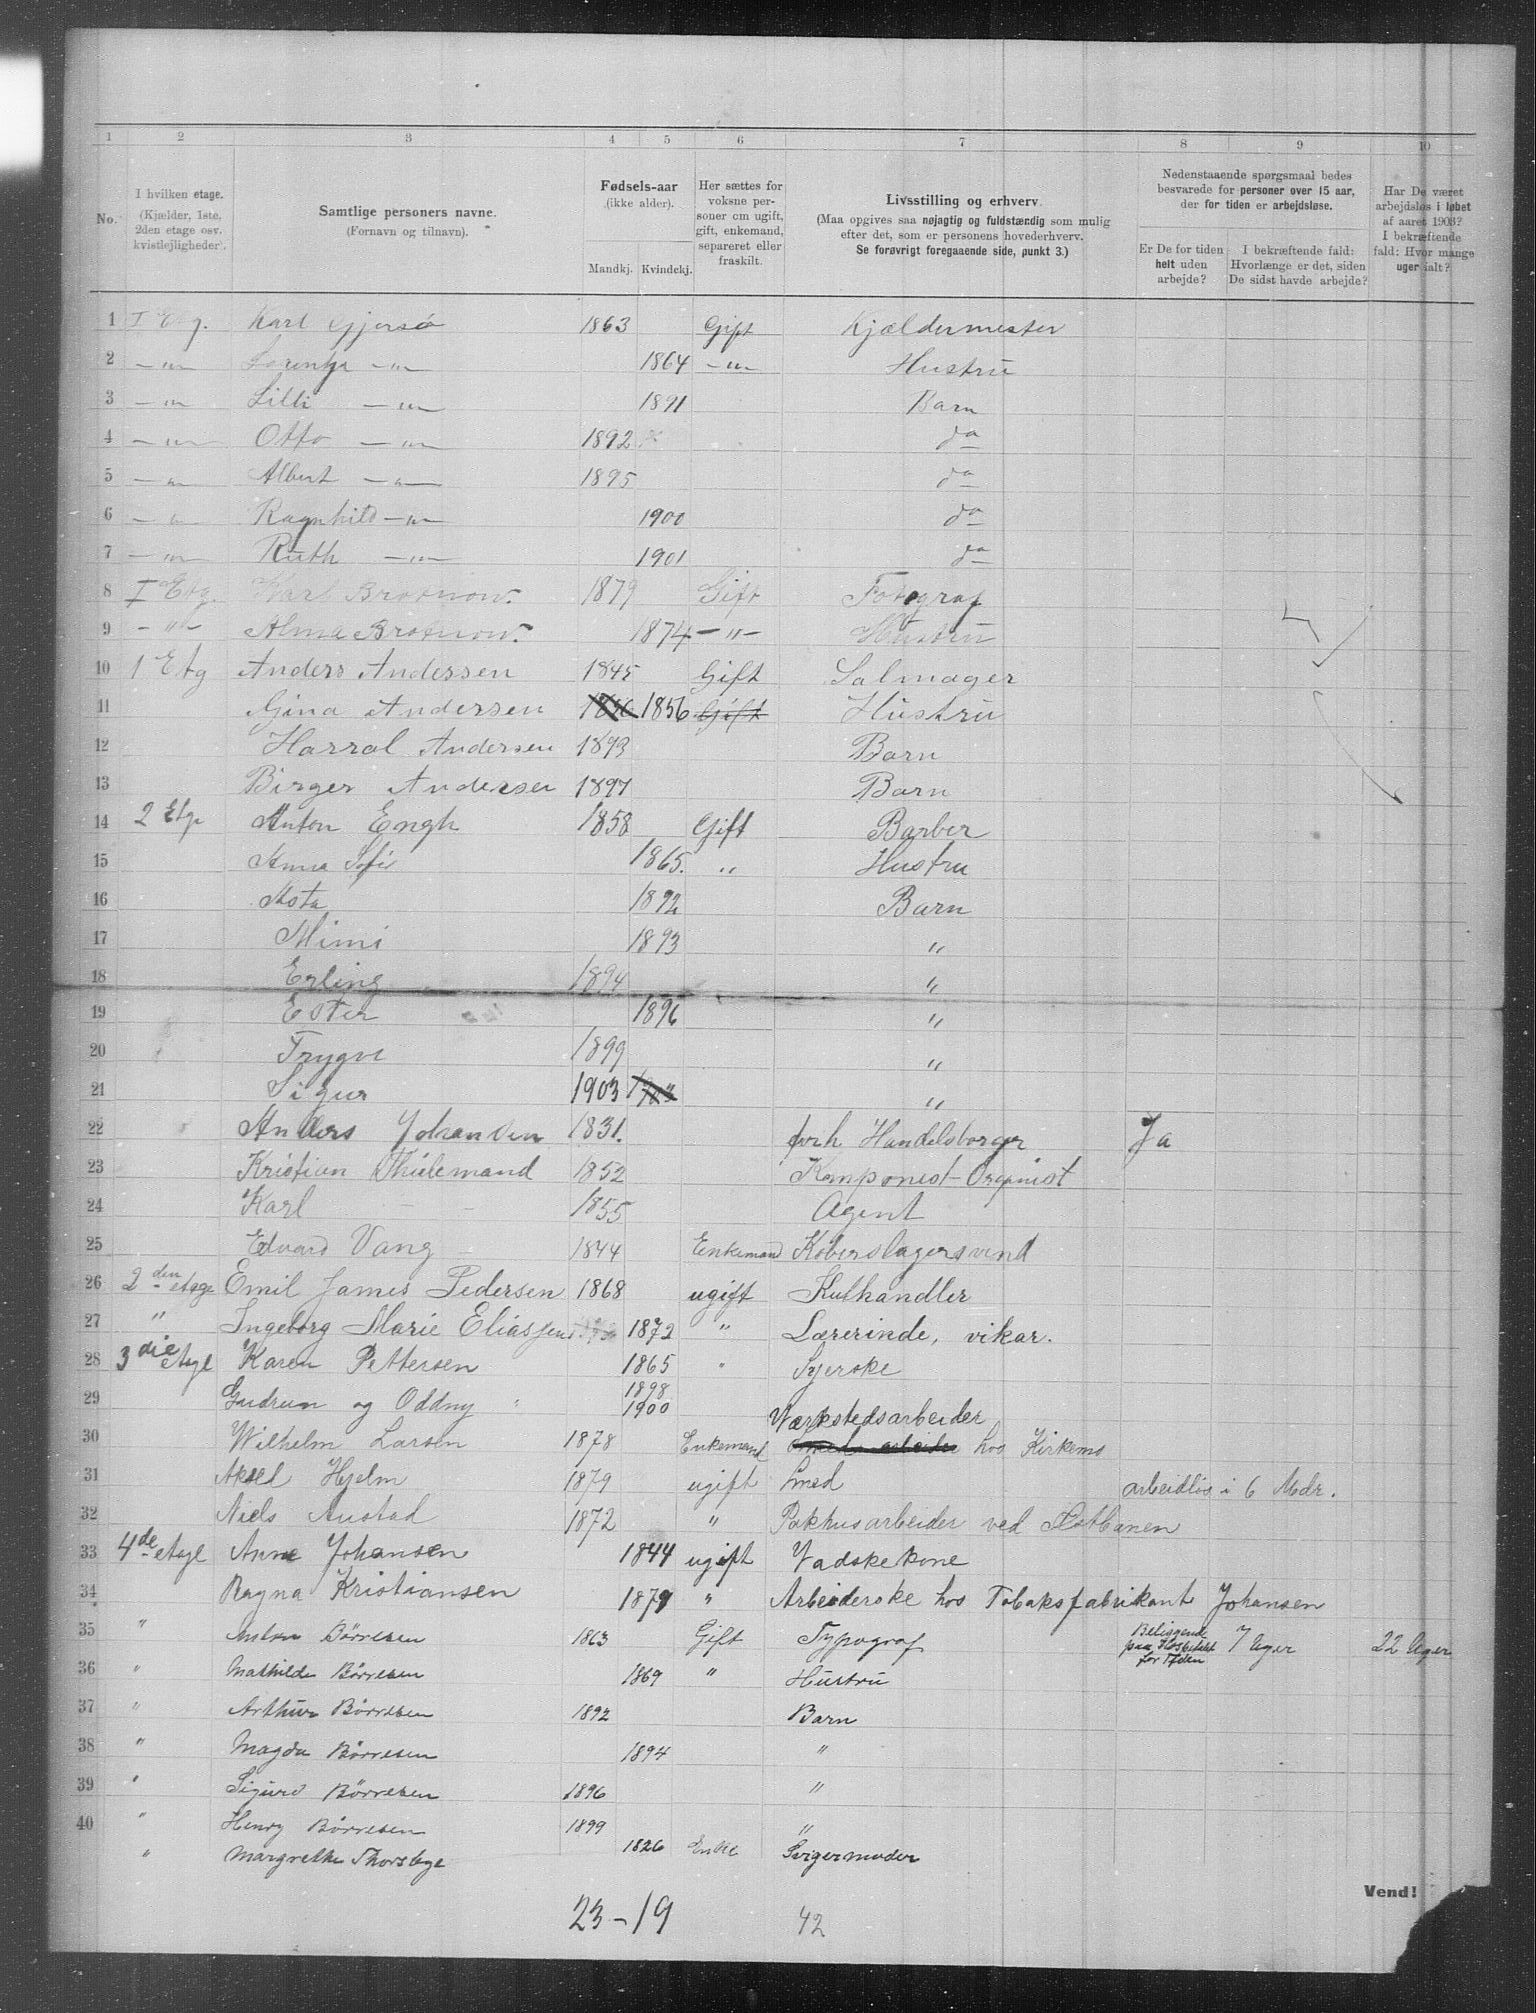 1 2 3 4 5 6 7 8 9 10
No.
I hvilken etage.
(Kjælder, 1ste, 2den etage osv. kvistlejligheder).
Samtlige personers navne.
(Fornavn og tilnavn).
Fødsels-aar
(ikke alder).
Mandkj. Kvindekj.
Her sættes for voksne personer om ugift, gift, enkemand, separeret eller fraskilt.
Livsstilling og erhverv.
(Maa opgives saa nøjagtig og fuldstændig som mulig efter det, som er personens hovederhverv.
Se forøvrigt foregaaende side, punkt 3.)
Nedenstaaende spørgsmaal bedes besvarede for personer over 15 aar, der for tiden er arbejdsløse.
Er De for tiden helt uden arbejde?
I bekræftende fald: Hvorlænge er det, siden De sidst havde arbejde?
Har De været arbejdsløs i løbet af aaret 1903? I bekræftende fald: Hvor mange uger ialt?
1 I Etg. Karl Gjersø 1863 Gift Kjældermester
2 –"– –"– 1864 –"– Hustru
3 –"– Lilli –"– 1891 Barn
4 –"– Otto –"– 1892 do
5 –"– Albert –"– 1895 do
6 –"– Ragnhild –"– 1900 do
7 –"– Ruth –"– 1901 do
8 I Etg. Karl Brotnow. 1879 Gift Fotograf
9 –"– Alma Brotnow. 1874 –"– Hustru
10 1 Etg Anders Andersen 1845 Gift Salmager
11 Gina Andersen 1856 1856 Gift Hustru
12 Harral Andersen 1893 Barn
13 Birger Andersen 1897 Barn
14 2 Etg Anton Engh 1858 Gift Barber
15 Anna Sofi 1865. " Hustru
16 Asta 1892 Barn
17 Mimi 1893 "
18 Erling 1894 "
19 Ester 1896 "
20 Trygve 1899 "
21 Sigur 1903 1903 "
22 Anders Johansen 1831. forh Handelsborger Ja
23 Kristian Thielemand 1852 Komponist-Organist
24 Karl – – 1855 Agent
25 Edvard Vang 1844 Enkemand Kobberslagersvend
26 2den etage Emil James Pedersen 1868 ugift Kulhandler
27 " Ingeborg Marie Eliassen 1872 " Lærerinde, vikar.
28 3die etage Karen Pettersen 1865 " Syerske
29 Gudrun og Oddny " 1898 1900
30 Wilhelm Larsen 1878 Enkemand Værkstedsarbeider hos Kirkens
31 Aksel Hjelm 1879 ugift Smed arbeidløs i 6 Mdr.
32 Niels Austad 1872 " Pakhusarbeider ved Østbanen
33 4de etage Anne Johansen 1844 ugift Vadskekone
34 Ragna Kristiansen 1879 " Arbeiderske hos Tobaksfabrikant Johansen
35 " Anton Børresen 1863 Gift Typograf Beliggende paa Hospitalet for Tiden 7 Uger 22 Uger
36 " Mathilde Børresen 1869 " Hustru
37 " Arthur Børresen 1892 Barn
38 " Magda Børresen 1894 "
39 " Sigurd Børresen 1896 "
40 " Henry Børresen 1899 "
" Margrethe 1826 Enke Svigermoder
Vend!
23–19 42